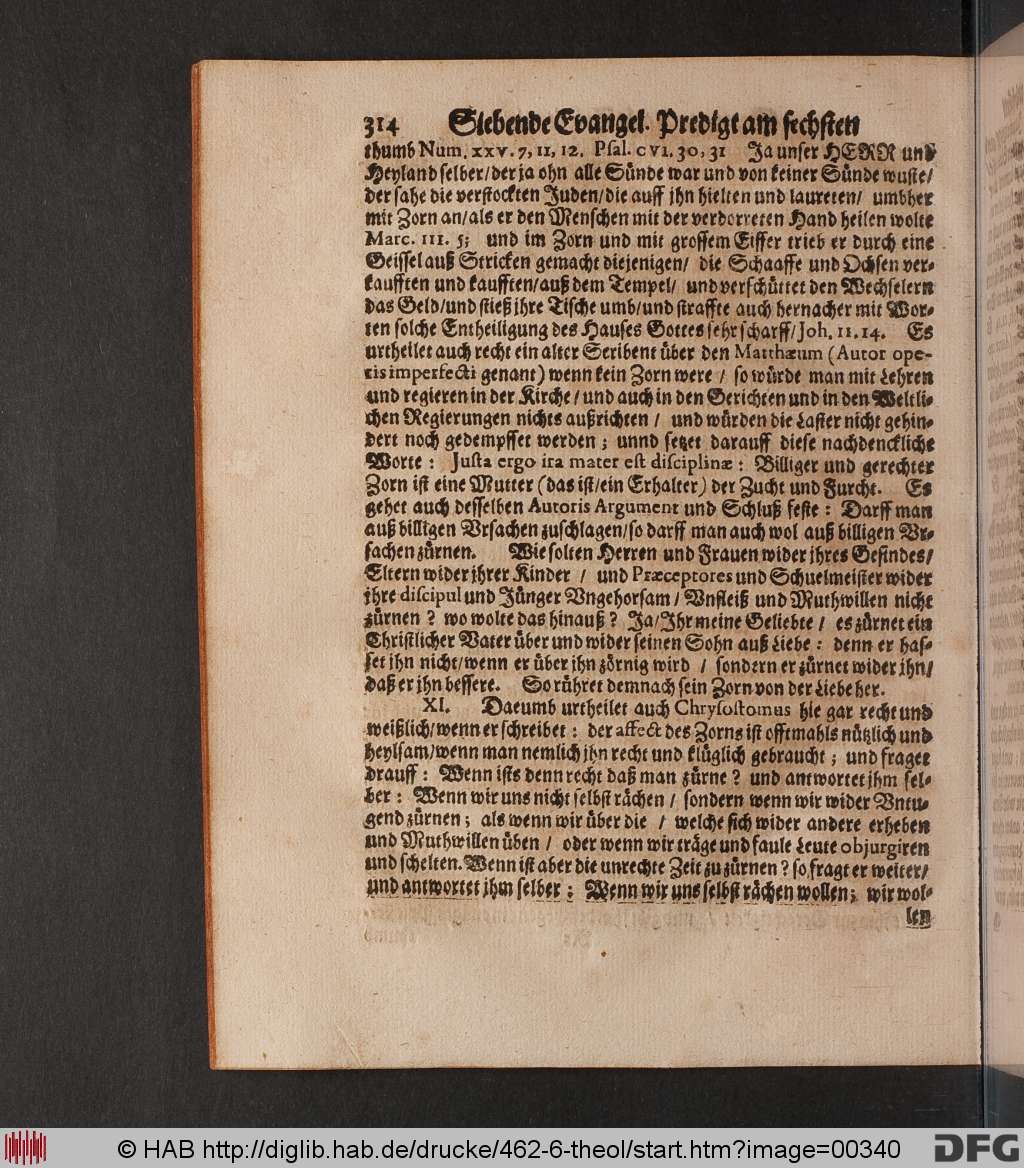 314 Siebende Evangel. Predigt am sechsten
thumb Num. XXV. 7, 11, 12. Psal. CVI. 30, 31 Ja unser HERR und
Heyland selber/der ja ohn alle Sünde war und von keiner Sünde wuste/
der sahe die verstockten Juden/die auff jhn hielten und laureten/ umbher
mit Zorn an/als er den Menschen mit der verdorreten Hand heilen wolte
Marc. III. 5; und im Zorn und mit grossem Eiffer trieb er durch eine
Geissel auß Stricken gemacht diejenigen/ die Schaaffe und Ochsen ver-
kaufften und kaufften/auß dem Tempel/ und verschüttet den Wechselern
das Geld/und stieß jhre Tische umb/und straffte auch hernacher mit Wor-
ten solche Entheiligung des Hauses Gottes sehr scharff/Joh. 11. 14. Es
urtheilet auch recht ein alter Scribent über den Matthæum (Autor ope-
ris imperfecti genant) wenn kein Zorn were / so würde man mit Lehren
und regieren in der Kirche/und auch in den Gerichten und in den Weltli-
chen Regierungen nichts außrichten / und würden die Laster nicht gehin-
dert noch gedempffet werden; unnd setzet darauff diese nachdenckliche
Worte: Justa ergo ira mater est disciplinæ: Billiger und gerechter
Zorn ist eine Mutter (das ist/ein Erhalter) der Zucht und Furcht. Es
gehet auch desselben Autoris Argument und Schluß feste: Darff man
auß billigen Vrsachen zuschlagen/so darff man auch wol auß billigen Vr-
sachen zürnen. Wie solten Herren und Frauen wider jhres Gesindes/
Eltern wider jhrer Kinder / und Præceptores und Schuelmeister wider
jhre discipul und Jünger Vngehorsam/ Vnfleiß und Muthwillen nicht
zürnen? wo wolte das hinauß? Ja/Jhr meine Geliebte/ es zürnet ein
Christlicher Vater über und wider seinen Sohn auß Liebe: denn er has-
set jhn nicht/wenn er über jhn zörnig wird / sondern er zürnet wider jhn/
daß er jhn bessere. So rühret demnach sein Zorn von der Liebe her.
XI. Daeumb urtheilet auch Chrysostomus hie gar recht und
weißlich/wenn er schreibet: der affect des Zorns ist offtmahls nützlich und
heylsam/wenn man nemlich jhn recht und klüglich gebraucht; und fraget
drauff: Wenn ists denn recht daß man zürne? und antwortet jhm sel-
ber: Wenn wir uns nicht selbst rächen/ sondern wenn wir wider Vntu-
gend zürnen; als wenn wir über die / welche sich wider andere erheben
und Muthwillen üben/ oder wenn wir träge und faule Leute objurgiren
und schelten. Wenn ist aber die unrechte Zeit zu zürnen? so fraget er weiter/
und antwortet jhm selber; Wenn wir uns selbst rächen wollen; wir wol-
len
© HAB http://diglib.hab.de/drucke/462-6-theol/start.htm?image=00340
DFG